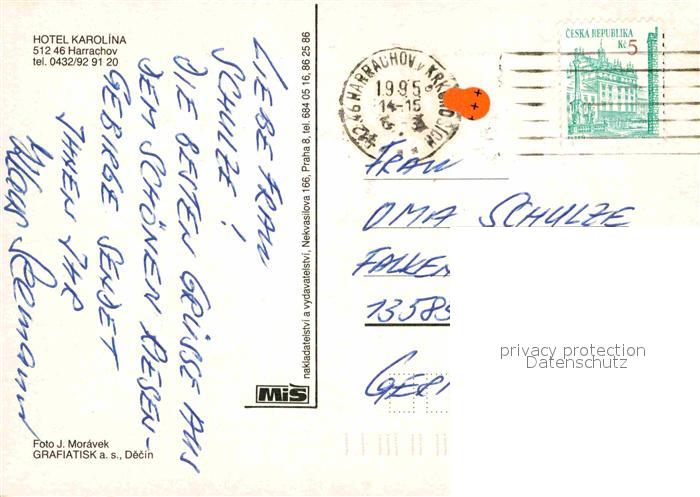 HOTEL KAROLÍNA
512 46 Harrachov
tel. 0432/92 91 20
LIEBE FRAU
SCHULZE!
DIE BESTEN GRÜSSE AUS
DEM SCHÖNEN RIESEN-
GEBIRGE SENDET
IHNEN IHR
Klaus
Foto J. Morávek
GRAFIATISK a. s., Děčín
nakladatelství a vydavatelství, Nekvasilova 166, Praha 8, tel. 684 05 16, 86 25 86
MiŠ
512 46 HARRACHOV V KRKONOŠÍCH
1995
14-15
ČESKÁ REPUBLIKA
Kč 5
FRAU
OMA SCHULZE
FALKEN
13583
GER
privacy protection
Datenschutz